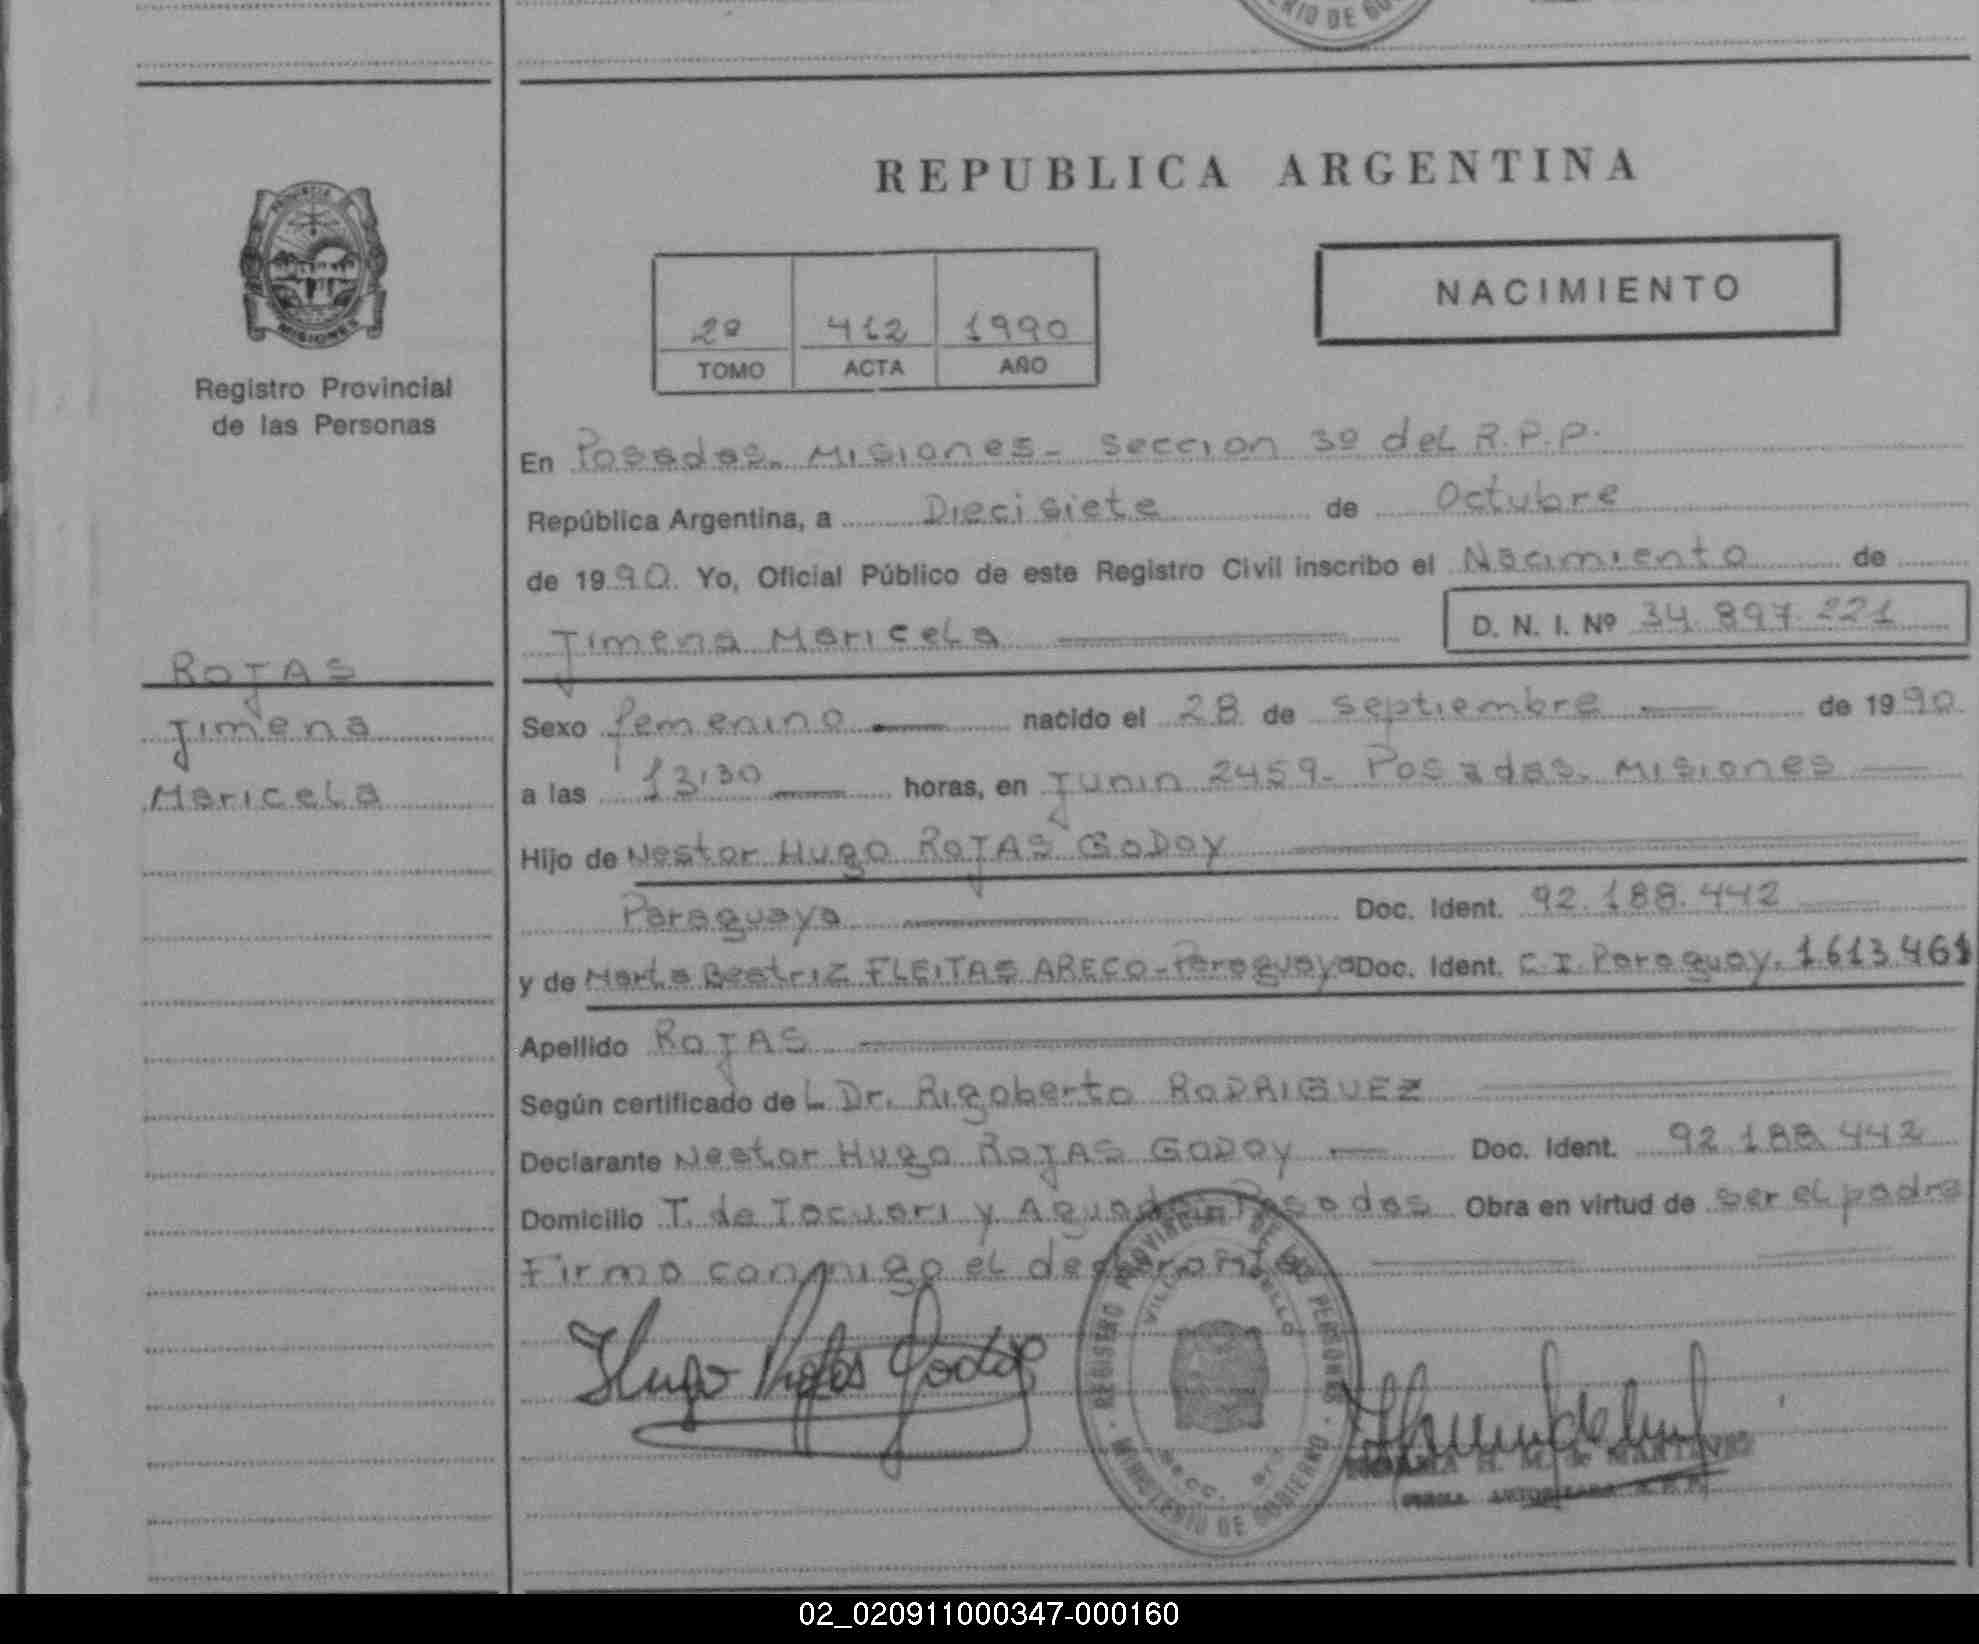 RIO DE GOB
REPUBLICA ARGENTINA
PROVINCIA
MISIONES
Registro Provincial
de las Personas
2º 412 1990
TOMO ACTA AÑO
NACIMIENTO
En Posadas. Misiones - Seccion 3º del R.P.P.
República Argentina, a Diecisiete de Octubre
de 1990. Yo, Oficial Público de este Registro Civil inscribo el Nacimiento de
Jimena Maricela
D. N. I. Nº 34.897.221
ROJAS
Jimena
Maricela
Sexo femenino nacido el 28 de septiembre de 1990
a las 13,30 horas, en Junin 2459 - Posadas. Misiones
Hijo de Nestor Hugo ROJAS GODOY
Paraguaya Doc. Ident. 92.188.442
y de Marta Beatriz FLEITAS ARECO - Paraguaya Doc. Ident. C.I. Paraguay. 1613461
Apellido ROJAS
Según certificado de L Dr. Rigoberto RODRIGUEZ
Declarante Nestor Hugo ROJAS GODOY Doc. Ident. 92.188.442
Domicilio T. de Tacuari y Aguado - Posadas Obra en virtud de ser el padre
Firma conmigo el declarante
Hugo Rojas Godoy
REGISTRO PROVINCIAL DE LAS PERSONAS
MINISTERIO DE GOBIERNO
VILLA CABELLO
SECC. 3ra.
NORMA H. M. de MARTINEZ
FIRMA AUTORIZADA R. P. P.
02_020911000347-000160